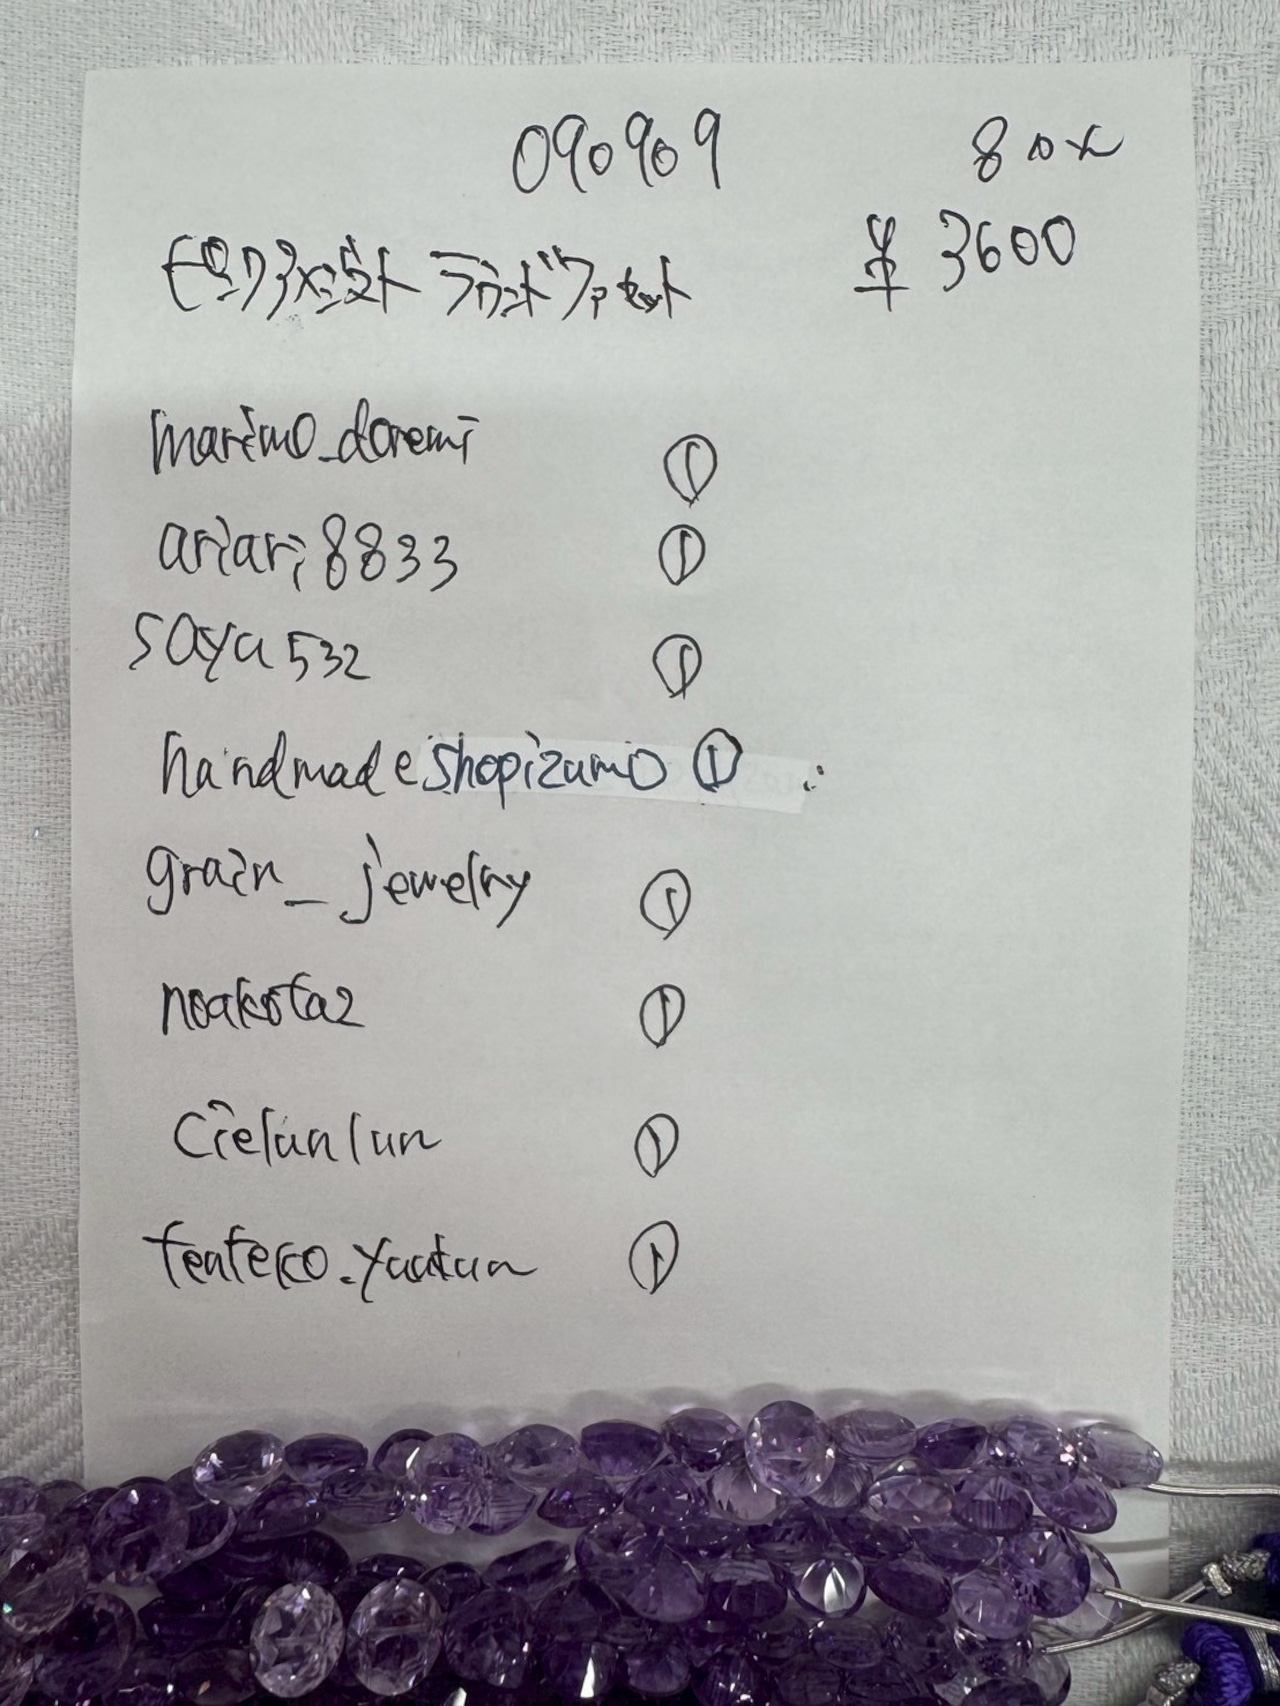 090909
ピンクアメジスト ラウンドファセット
¥3600
marimo_doremi ①
ariari8833 ①
saya532 ①
handmadeshopizumo ①
grain_jewelry ①
noakota2 ①
cielunlun ①
①